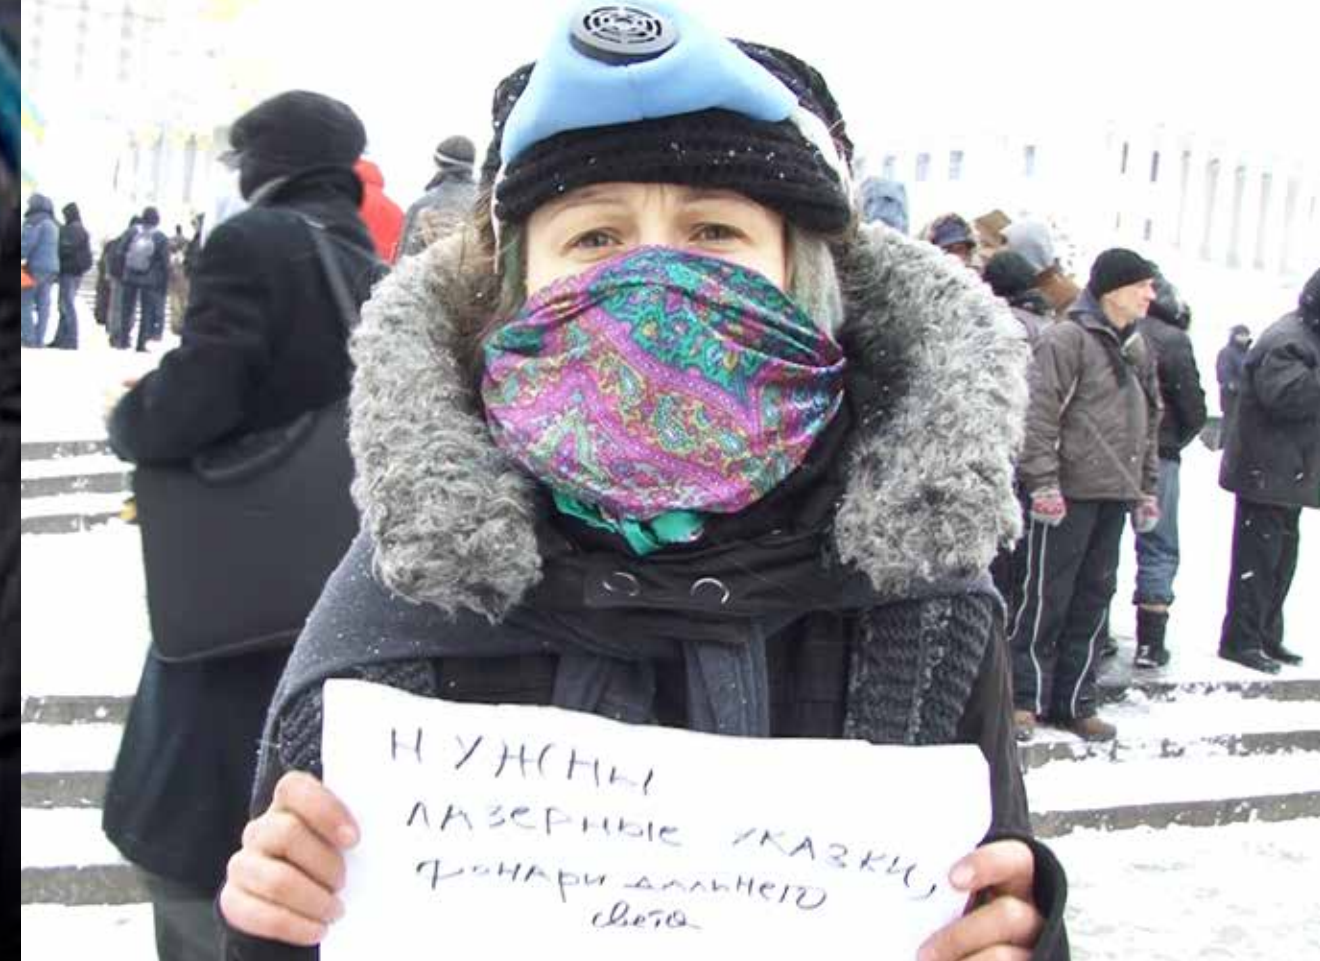 НУЖНЫ
ЛАЗЕРНЫЕ УКАЗКИ,
фонари дальнего
света